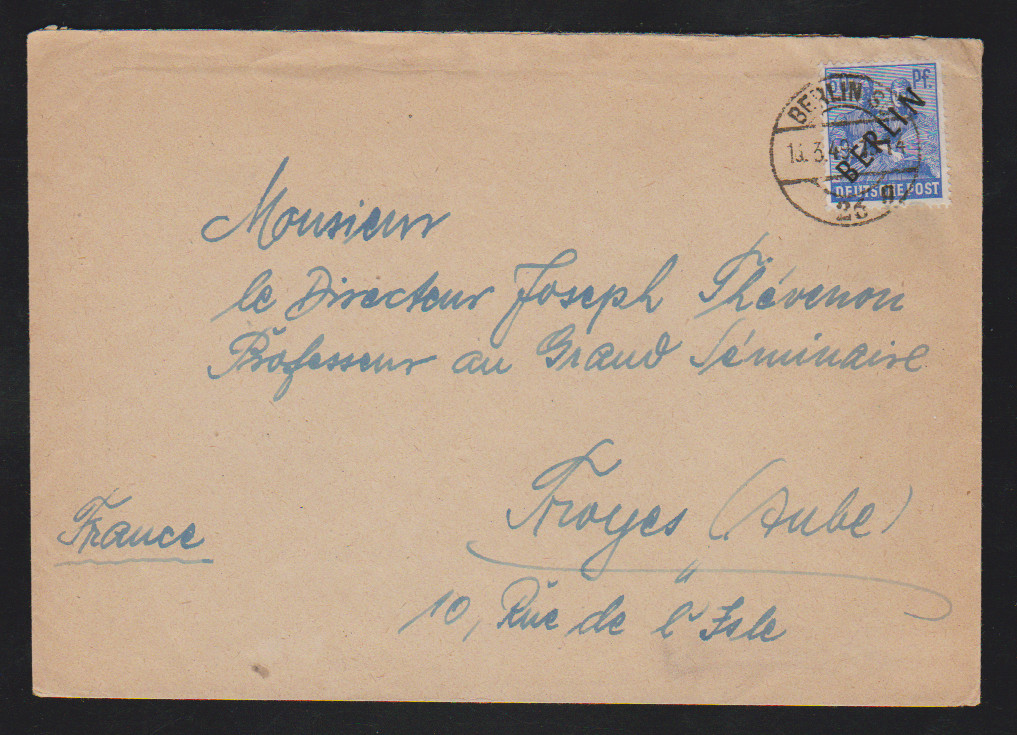 BERLIN
Pf.
BERLIN
DEUTSCHE POST
Monsieur
le Directeur Joseph Thévenon
Professeur au Grand Séminaire
Troyes (Aube)
France
10, Rue de l'Isle